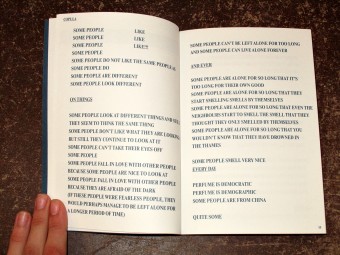 COPULA
SOME PEOPLE LIKE
SOME PEOPLE LIKE
SOME PEOPLE LIKE!!!
SOME PEOPLE
SOME PEOPLE DO NOT LIKE THE SAME PEOPLE AS
SOME PEOPLE DO
SOME PEOPLE ARE DIFFERENT
SOME PEOPLE LOOK DIFFERENT
ON THINGS
SOME PEOPLE LOOK AT DIFFERENT THINGS AND YET
THEY SEEM TO THINK THE SAME THING
SOME PEOPLE DON'T LIKE WHAT THEY ARE LOOKING
BUT STILL THEY CONTINUE TO LOOK AT IT
SOME PEOPLE CAN'T TAKE THEIR EYES OFF
SOME PEOPLE
SOME PEOPLE FALL IN LOVE WITH OTHER PEOPLE
BECAUSE SOME PEOPLE ARE NICE TO LOOK AT
SOME PEOPLE FALL IN LOVE WITH OTHER PEOPLE
BECAUSE THEY ARE AFRAID OF THE DARK
(IF THESE PEOPLE WERE FEARLESS PEOPLE, THEY
WOULD PERHAPS MANAGE TO BE LEFT ALONE FOR
A LONGER PERIOD OF TIME)
SOME PEOPLE CAN'T BE LEFT ALONE FOR TOO LONG
AND SOME PEOPLE CAN LIVE ALONE FOREVER
AND EVER
SOME PEOPLE ARE ALONE FOR SO LONG THAT IT'S
TOO LONG FOR THEIR OWN GOOD
SOME PEOPLE ARE ALONE FOR SO LONG THAT THEY
START SMELLING SMELLS BY THEMSELVES
SOME PEOPLE ARE ALONE FOR SO LONG THAT EVEN THE
NEIGHBOURS START TO SMELL THE SMELL THAT THEY
THOUGHT THEY ONLY SMELLED BY THEMSELVES
SOME PEOPLE ARE ALONE FOR SO LONG THAT YOU
WOULDN'T KNOW THAT THEY HAVE DROWNED IN
THE THAMES
SOME PEOPLE SMELL VERY NICE
EVERY DAY
PERFUME IS DEMOCRATIC
PERFUME IS DEMOGRAPHIC
SOME PEOPLE ARE FROM CHINA
QUITE SOME